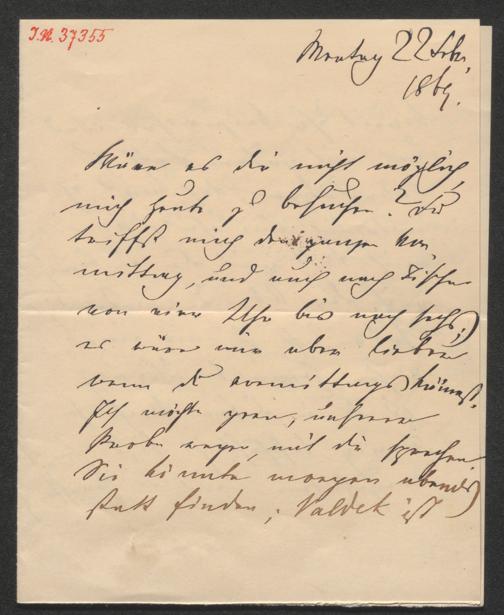 I.N. 37355
Montag 22 Febr.
1869.
Wäre es dir nicht möglich
mich heute zu besuchen? Du
triffst mich den ganzen Vor-
mittag, und auch nach Tische
von vier Uhr bis nach sechs;
es wäre mir aber lieber
wenn du vormittags kämest.
Ich möchte gern, unserer
Probe wegen, mit dir sprechen.
Sie könnte morgen abends
statt finden; Valdek ist